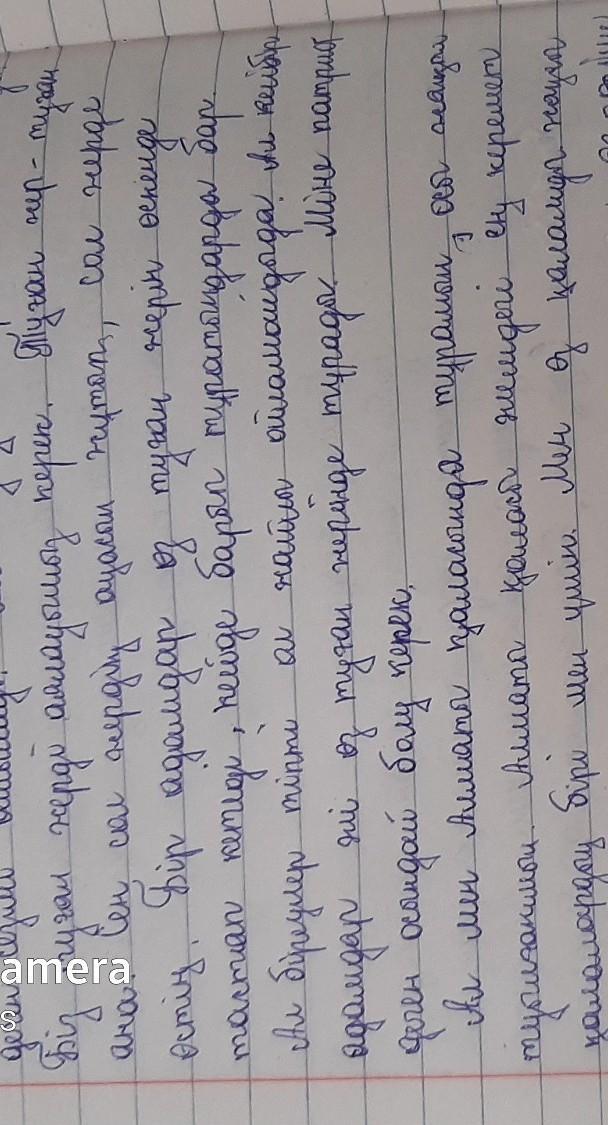 деген сезім
Біз туған жерді аялауымыз керек. Туған жер-туған
ана. Сен сол жердің ауасын жұтып, сол жерде
өстің. Бір адамдар өз туған жерін өскенде
тастап кетеді, кейде барып тұратындарда бар.
Ал біреулер тіпті ол жайлы ойламайдыда. Ал кейбір
адамдар әлі өз туған жерінде тұрады. Міне патриот
деген осындай болу керек.
Ал мен Алматы қаласында тұрамын, осы жақтың
тұрғынымын. Алматы қаласы әлемдегі ең керемет
қалалардың бірі мен үшін. Мен өз қаламды жақсы
amera
s